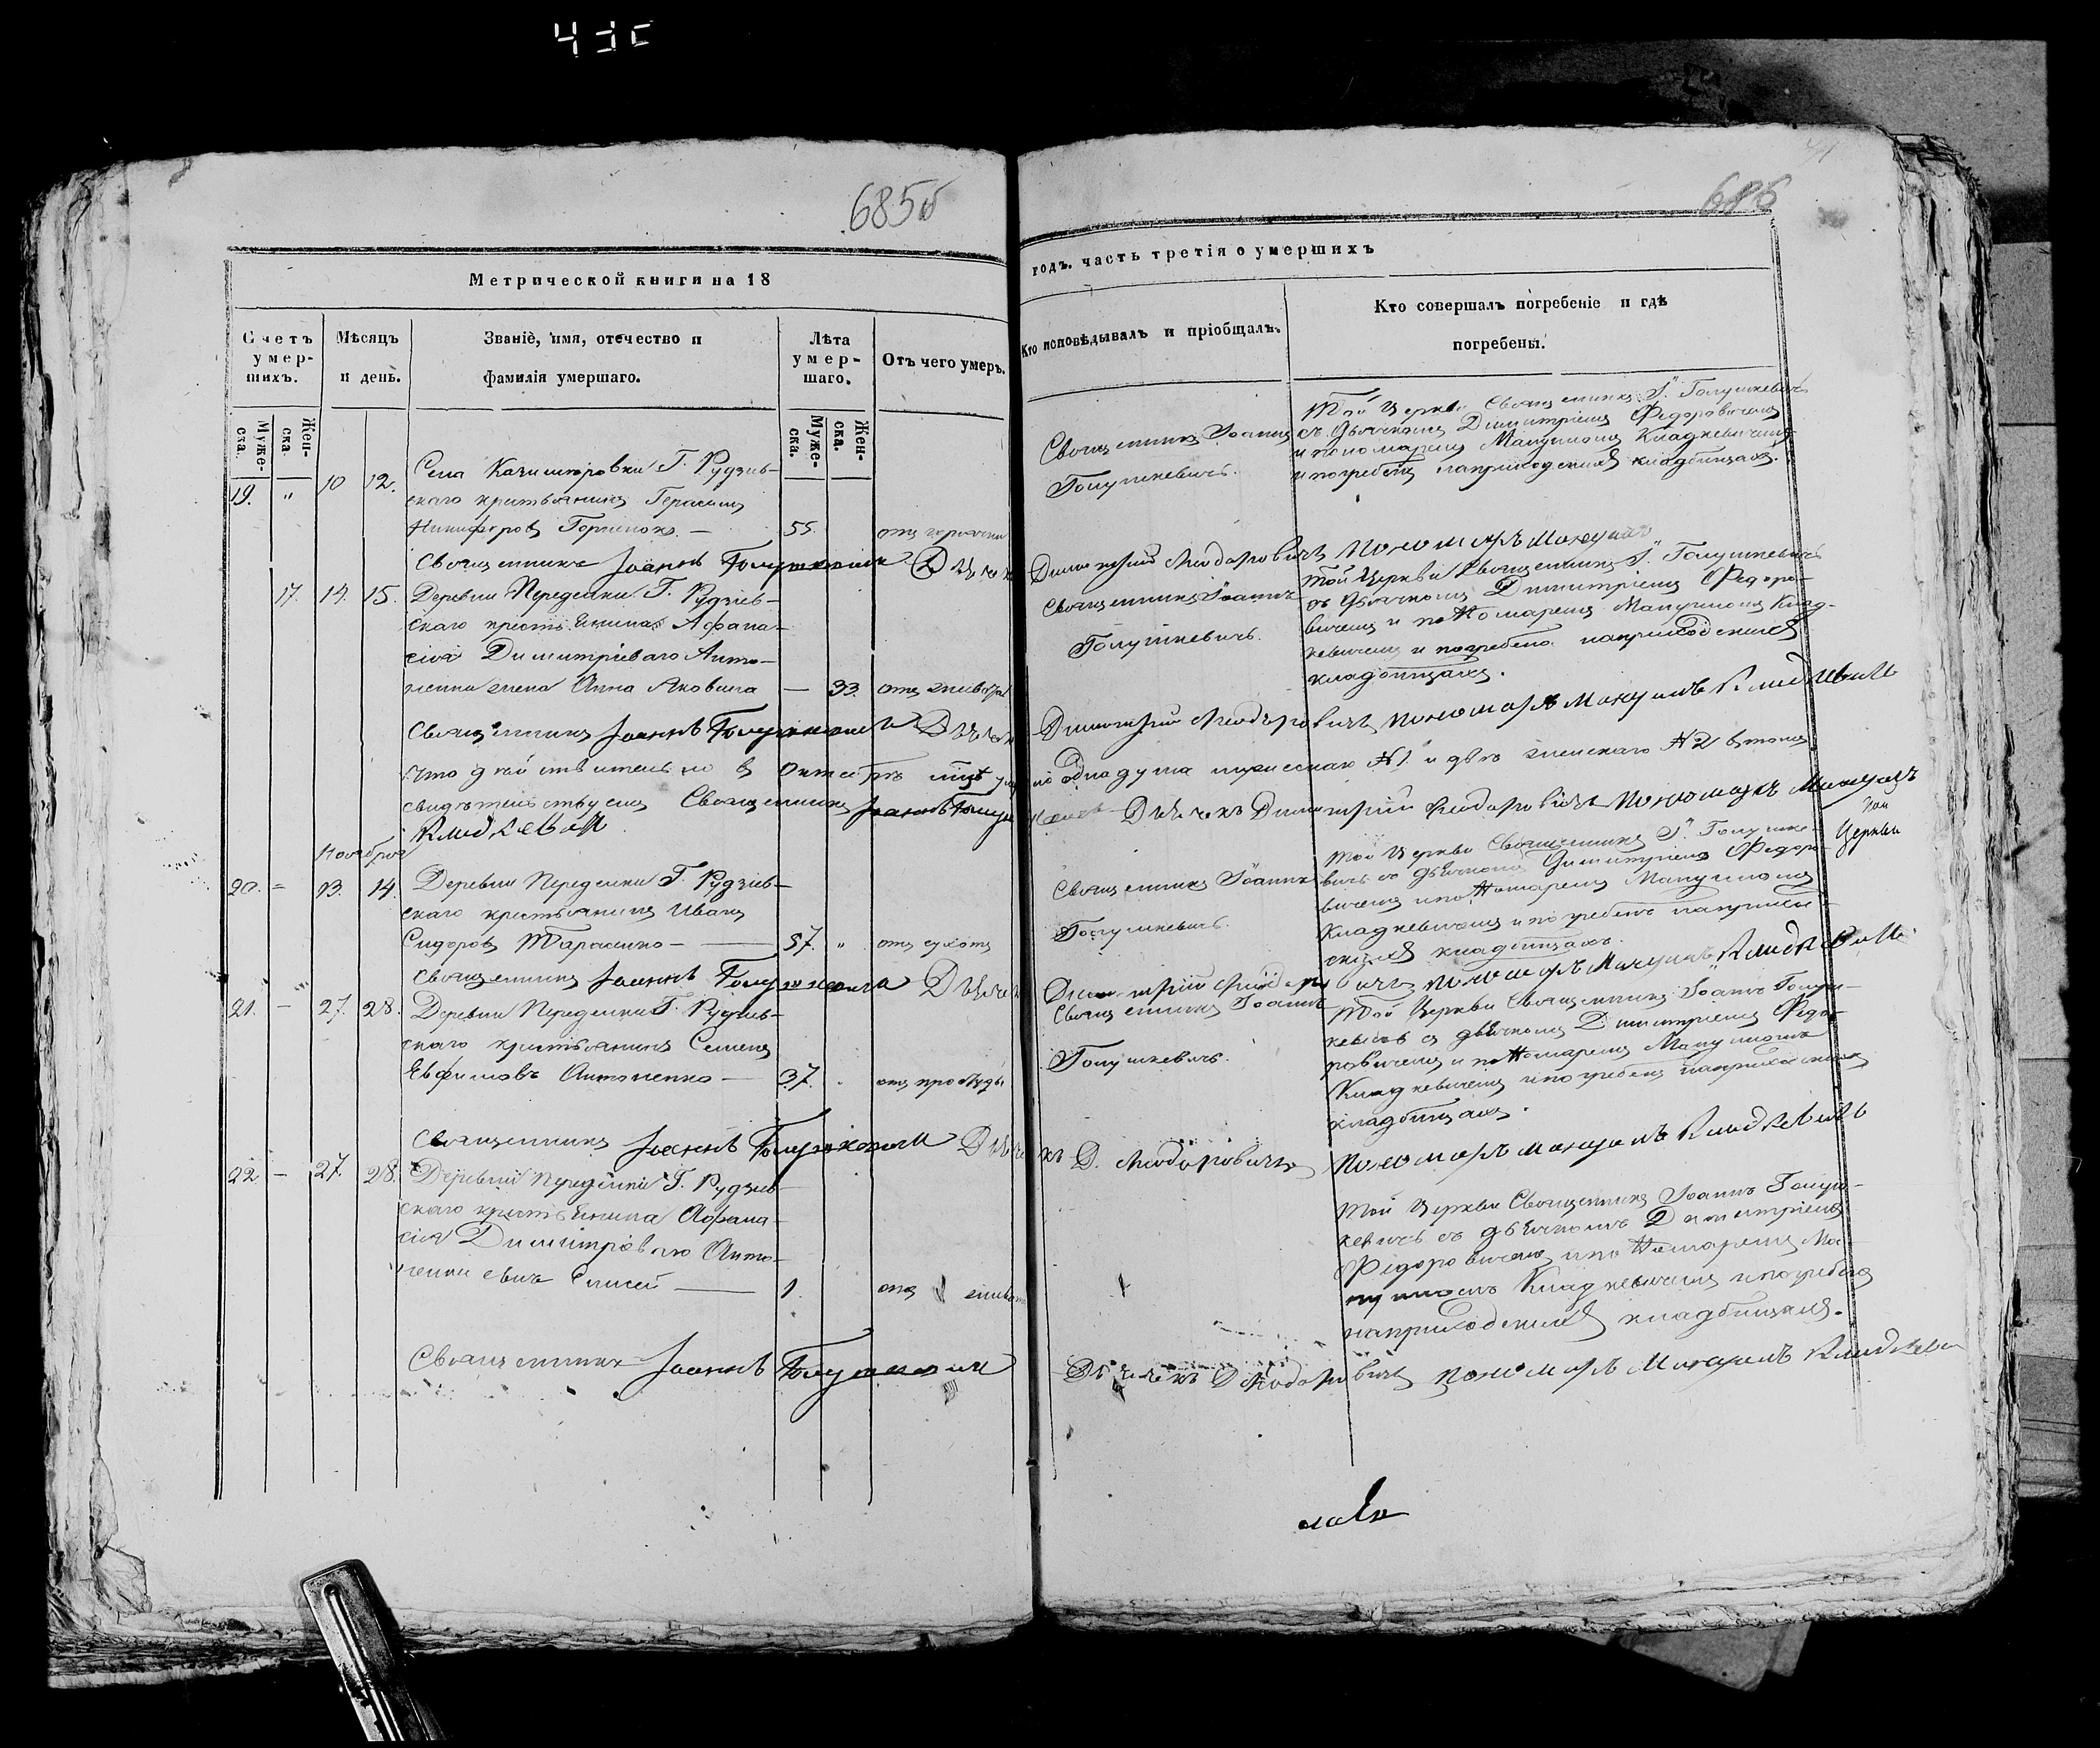 685б
686
Метрической книги на 18
годъ. часть третія о умершихъ
Счетъ умер-шихъ.
Мѣсяцъ и день.
Званіе, имя, отечество и фамилія умершаго.
Лѣта умер-шаго.
Отъ чего умеръ.
Кто исповѣдывалъ и пріобщалъ.
Кто совершалъ погребеніе и гдѣ погребены.
Муже-ска.
Жен-ска
Муже-ска.
Жен-ска.
19. " 10 12. Села Казимировки Г. Рудзіев-
скаго крестьянинъ Герасимъ
Никифоровъ — 55.
Священникъ Іоаннъ
Голушкевичъ.
Той Церкви Священникъ І. Голушкевичъ
съ Дьячкомъ Димитріемъ Федоровичемъ
и пономаремъ Кладкевичемъ
и погребенъ наприходскихъ кладбищахъ.
Священникъ Іоаннъ Голушкевичъ Дьячекъ
Димитрій Феодоровичъ пономарь
17. 14. 15. Деревни Передѣлки Г. Рудзіев-
скаго крестьянина Афана-
сія Димитріеваго Анто-
ненки жена Анна Яковлева — 33.
Священникъ Іоаннъ
Голушкевичъ.
Той Церкви Священникъ І. Голушкевичъ
съ Дьячкомъ Димитріемъ Федоро-
вичемъ и пономаремъ Клад-
кевичемъ и погребена наприходскихъ
кладбищахъ.
Священникъ Іоаннъ Голушкевичъ Дьячекъ
Димитрій Феодоровичъ пономарь Кладкевичъ
Что дѣйствительно въ Октябрѣ мцѣ
одна душа мужескаго №1 и двѣ женскаго №2 втомъ
свидѣтельствуемъ Священникъ Іоаннъ Голушкевичъ
Дьячекъ Димитрій Феодоровичъ пономарь
Кладкевичъ
той
Церкви
Ноября
20. – 13. 14. Деревни Передѣлки Г. Рудзіев-
скаго крестьянинъ Иванъ
Сидоровъ Тарасенко — 57. " отъ сухоты
Священникъ Іоаннъ
Голушкевичъ.
Той Церкви Священникъ І. Голушке-
вичъ съ дьячкомъ Димитріемъ Федоро-
вичемъ и пономаремъ
Кладкевичемъ и погребенъ
кладбищахъ.
Священникъ Іоаннъ Голушкевичъ Дьячекъ
Димитрій Феодоровичъ пономарь Кладкевичъ
21. – 27. 28. Деревни Передѣлки Г. Рудзіев-
скаго крестьянинъ Семенъ
Евфимовъ Антоненко — 37. отъ простуды
Священникъ Іоаннъ
Голушкевичъ.
Той Церкви Священникъ Іоаннъ Голуш-
кевичъ съ дьячкомъ Димитріемъ Федо-
ровичемъ и пономаремъ
Кладкевичемъ и погребенъ наприходскихъ
кладбищахъ.
Священникъ Іоаннъ Голушкевичъ Дьячекъ
Д. Феодоровичъ пономарь Кладкевичъ
22 – 27. 28. Деревни Передѣлки Г. Рудзіев-
скаго крестьянина Афана-
сія Димитріеваго Анто-
ненки сынъ Елисей — 1. отъ
Той Церкви Священникъ Іоаннъ Голуш-
кевичъ съ дьячкомъ Димитріемъ
Федоровичемъ и пономаремъ
Кладкевичемъ и погребенъ
наприходскихъ кладбищахъ.
Священникъ Іоаннъ Голушкевичъ
Дьячекъ Д Феодоровичъ пономарь Кладкевичъ